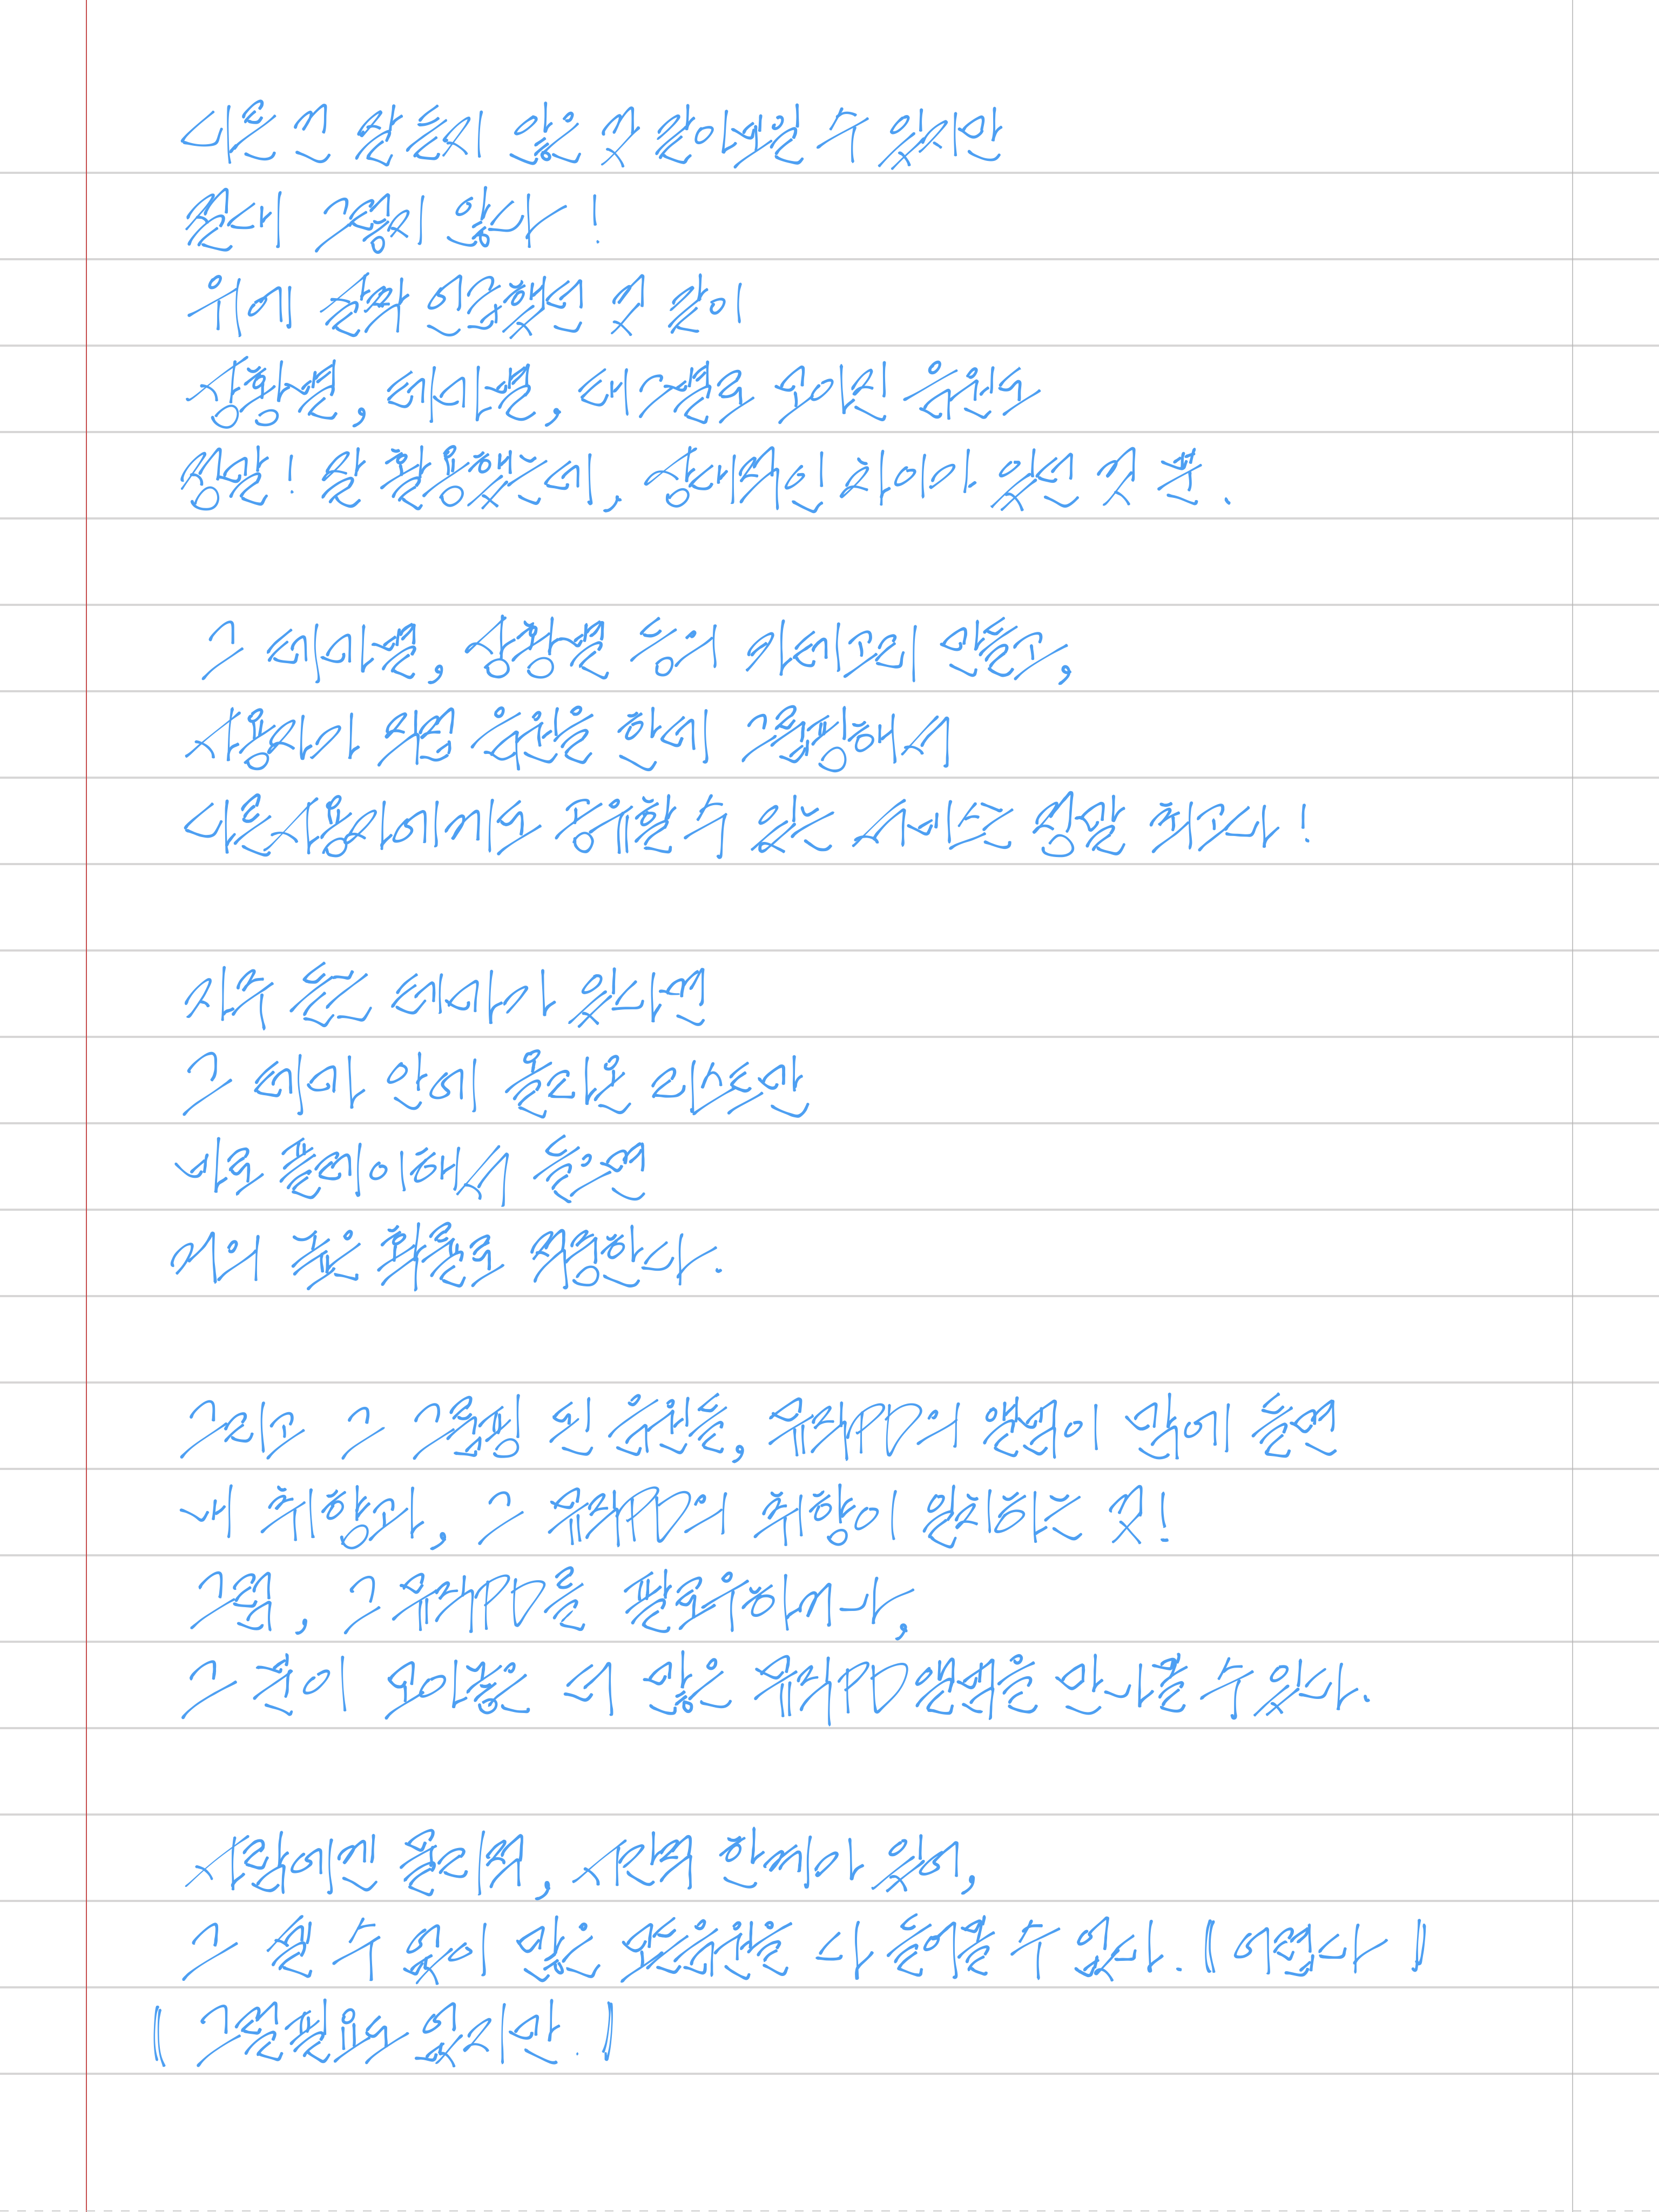 다른 건 잘 듣지 않은 것 같아보일 수 있지만
절대 그렇지 않다!
위에 살짝 언급했던 것 같이
상황별, 테마별, 태그별로 모아진 음원도
정말! 잘 활용했는데, 상대적인 차이가 있던 것 뿐.
그 테마별, 상황별 등의 카테고리 만들고,
사용자가 직접 음원을 한데 그룹핑해서
다른사용자에게도 공유할 수 있는 서비스는 정말 최고다!
자주 듣는 테마가 있다면
그 테마 안에 올라온 리스트만
바로 플레이해서 들으면
거의 높은 확률로 적중한다.
그리고 그 그룹핑 된 음원들, 뮤직PD의 앨범이 맘에 들면
내 취향과, 그 뮤직PD의 취향이 일치하는 것!
그럼, 그 뮤직PD를 팔로우하거나,
그 분이 모아놓은 더 많은 뮤직PD앨범을 만나볼 수 있다.
사람에겐 물리적, 시간적 한계가 있어,
그 셀 수 없이 많은 모든음원을 다 들어볼 수 없다. (어렵다)
(그럴필요도 없지만.)